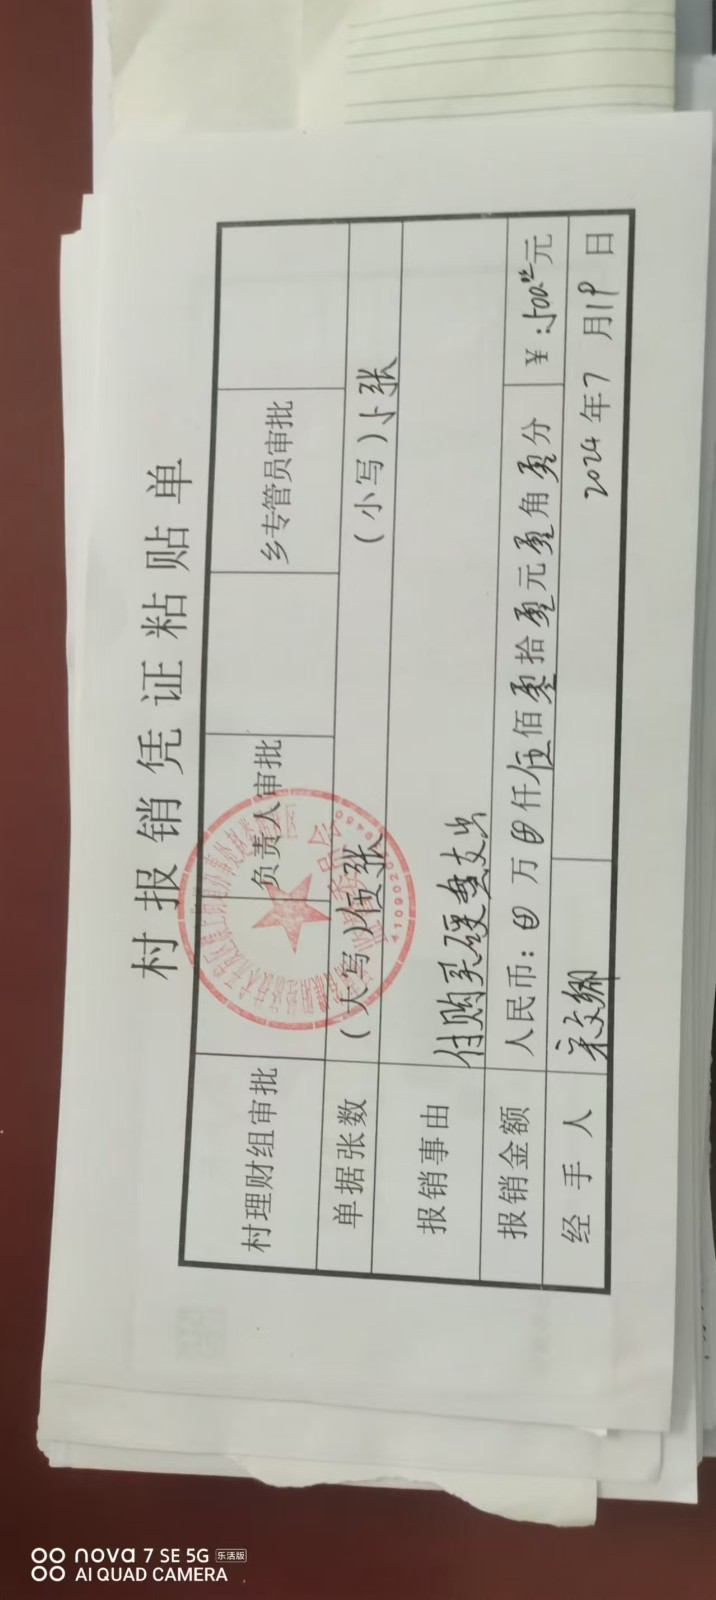 村报销凭证粘贴单
村理财组审批 负责人审批 乡专管员审批
单据张数 (大写)伍张 (小写)5张
报销事由 付购买硬盘支出
报销金额 人民币: 0 万 0 仟伍佰零拾零元零角零分 ¥:500.00元
经手人 2024年7月19日
nova 7 SE 5G 乐活版
AI QUAD CAMERA